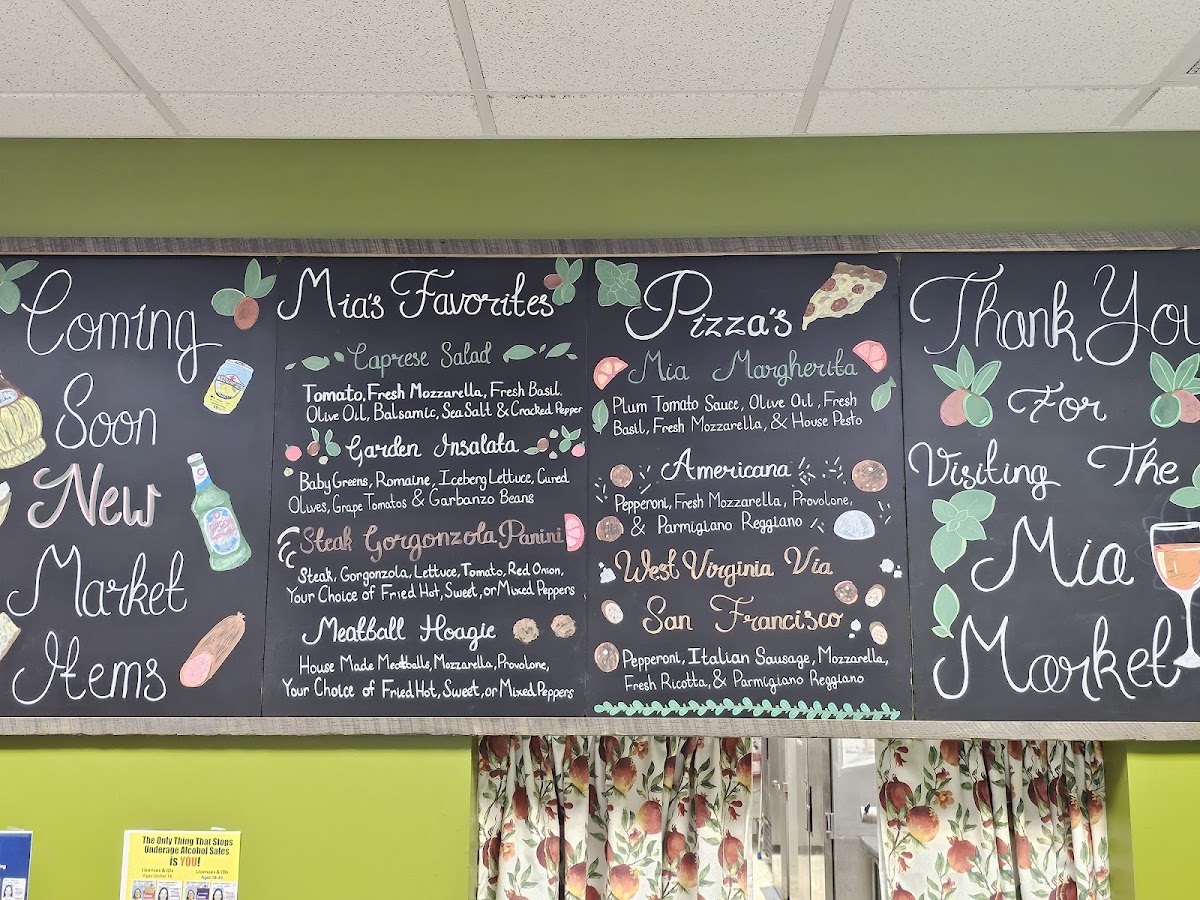 Coming
Soon
New
Market
Items
Mia's Favorites
Caprese Salad
Tomato, Fresh Mozzarella, Fresh Basil.
Olive Oil, Balsamic, Sea Salt & Cracked Pepper
Garden Insalata
Baby Greens, Romaine, Iceberg Lettuce, Cured
Olives, Grape Tomatos & Garbanzo Beans
Steak Gorgonzola Panini
Steak, Gorgonzola, Lettuce, Tomato, Red Onion,
Your Choice of Fried Hot, Sweet, or Mixed Peppers
Meatball Hoagie
House Made Meatballs, Mozzarella, Provolone,
Your Choice of Fried Hot, Sweet, or Mixed Peppers
Pizza's
Mia Margherita
Plum Tomato Sauce, Olive Oil, Fresh
Basil, Fresh Mozzarella, & House Pesto
Americana
Pepperoni, Fresh Mozzarella, Provolone,
& Parmigiano Reggiano
West Virginia Via
San Francisco
Pepperoni, Italian Sausage, Mozzarella,
Fresh Ricotta, & Parmigiano Reggiano
Thank You
For
Visiting The
Mia
Market
The Only Thing That Stops
Underage Alcohol Sales
is YOU!
Licenses & IDs
Licenses & IDs